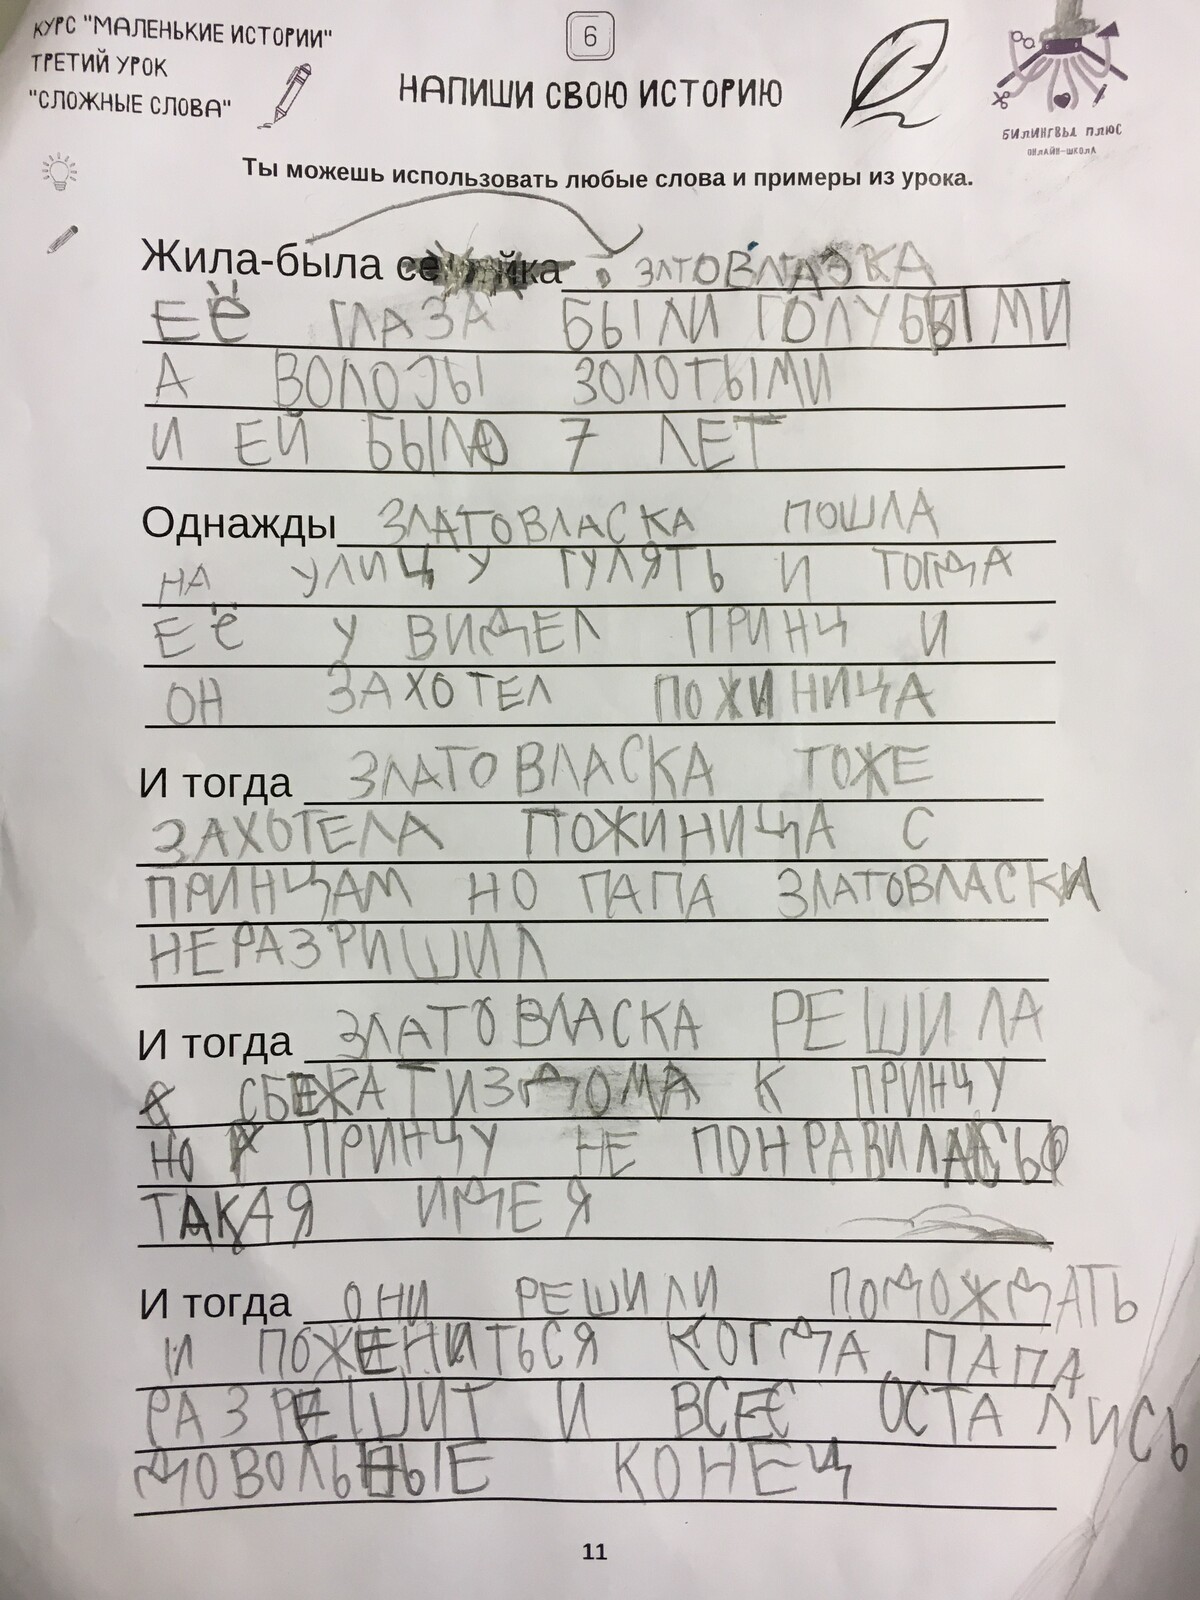 КУРС "МАЛЕНЬКИЕ ИСТОРИИ"
ТРЕТИЙ УРОК
"СЛОЖНЫЕ СЛОВА"
6
НАПИШИ СВОЮ ИСТОРИЮ
БИЛИНГВЫ ПЛЮС
ОНЛАЙН-ШКОЛА
Ты можешь использовать любые слова и примеры из урока.
Жила-была ЗЛТОВЛАСКА
ЕЁ ГЛАЗА БЫЛИ ГОЛУБЫМИ
А ВОЛОЗЫ ЗОЛОТЫМИ
И ЕЙ БЫЛО 7 ЛЕТ
Однажды ЗЛАТОВЛАСКА ПОШЛА
НА УЛИЦУ ГУЛЯТЬ И ТОГДА
ЕЁ УВИДЕЛ ПРИНЦ И
ОН ЗАХОТЕЛ ПОЖИНИЦА
И тогда ЗЛАТОВЛАСКА ТОЖЕ
ЗАХОТЕЛА ПОЖИНИЦА С
ПРИНЦАМ НО ПАПА ЗЛАТОВЛАСКИ
НЕРАЗРИШИЛ
И тогда ЗЛАТОВЛАСКА РЕШИЛА
СБЕЖАТ ИЗ ДОМА К ПРИНЦУ
НО ПРИНЦУ НЕ ПОНРАВИЛАСЬ
ТАКАЯ ИДЕЯ
И тогда ОНИ РЕШИЛИ ПОДОЖДАТЬ
И ПОЖЕНИТЬСЯ КОГДА ПАПА
РАЗРЕШИТ И ВСЕ ОСТАЛИСЬ
ДОВОЛЬНЫЕ КОНЕЦ
11